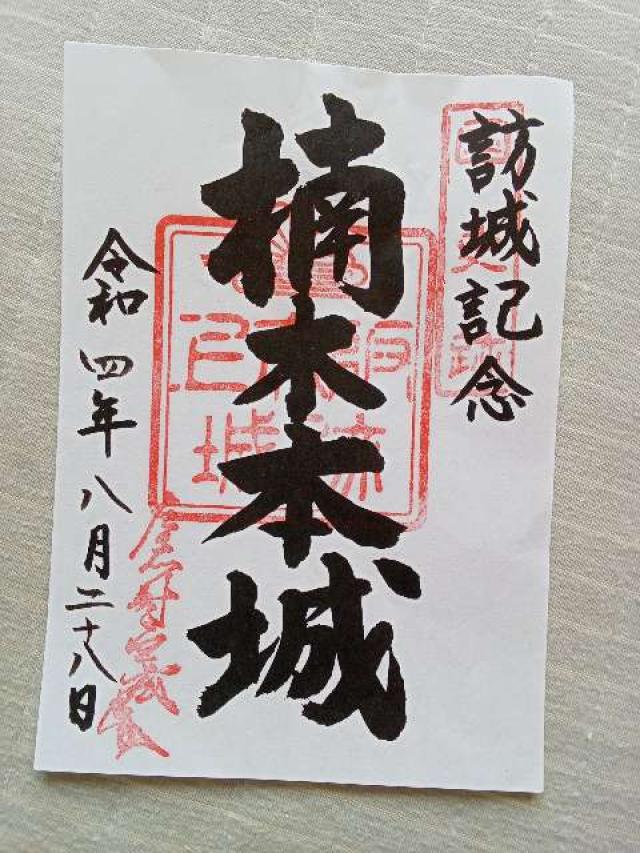 訪城記念
国史跡
楠木本城
令和四年八月二十八日